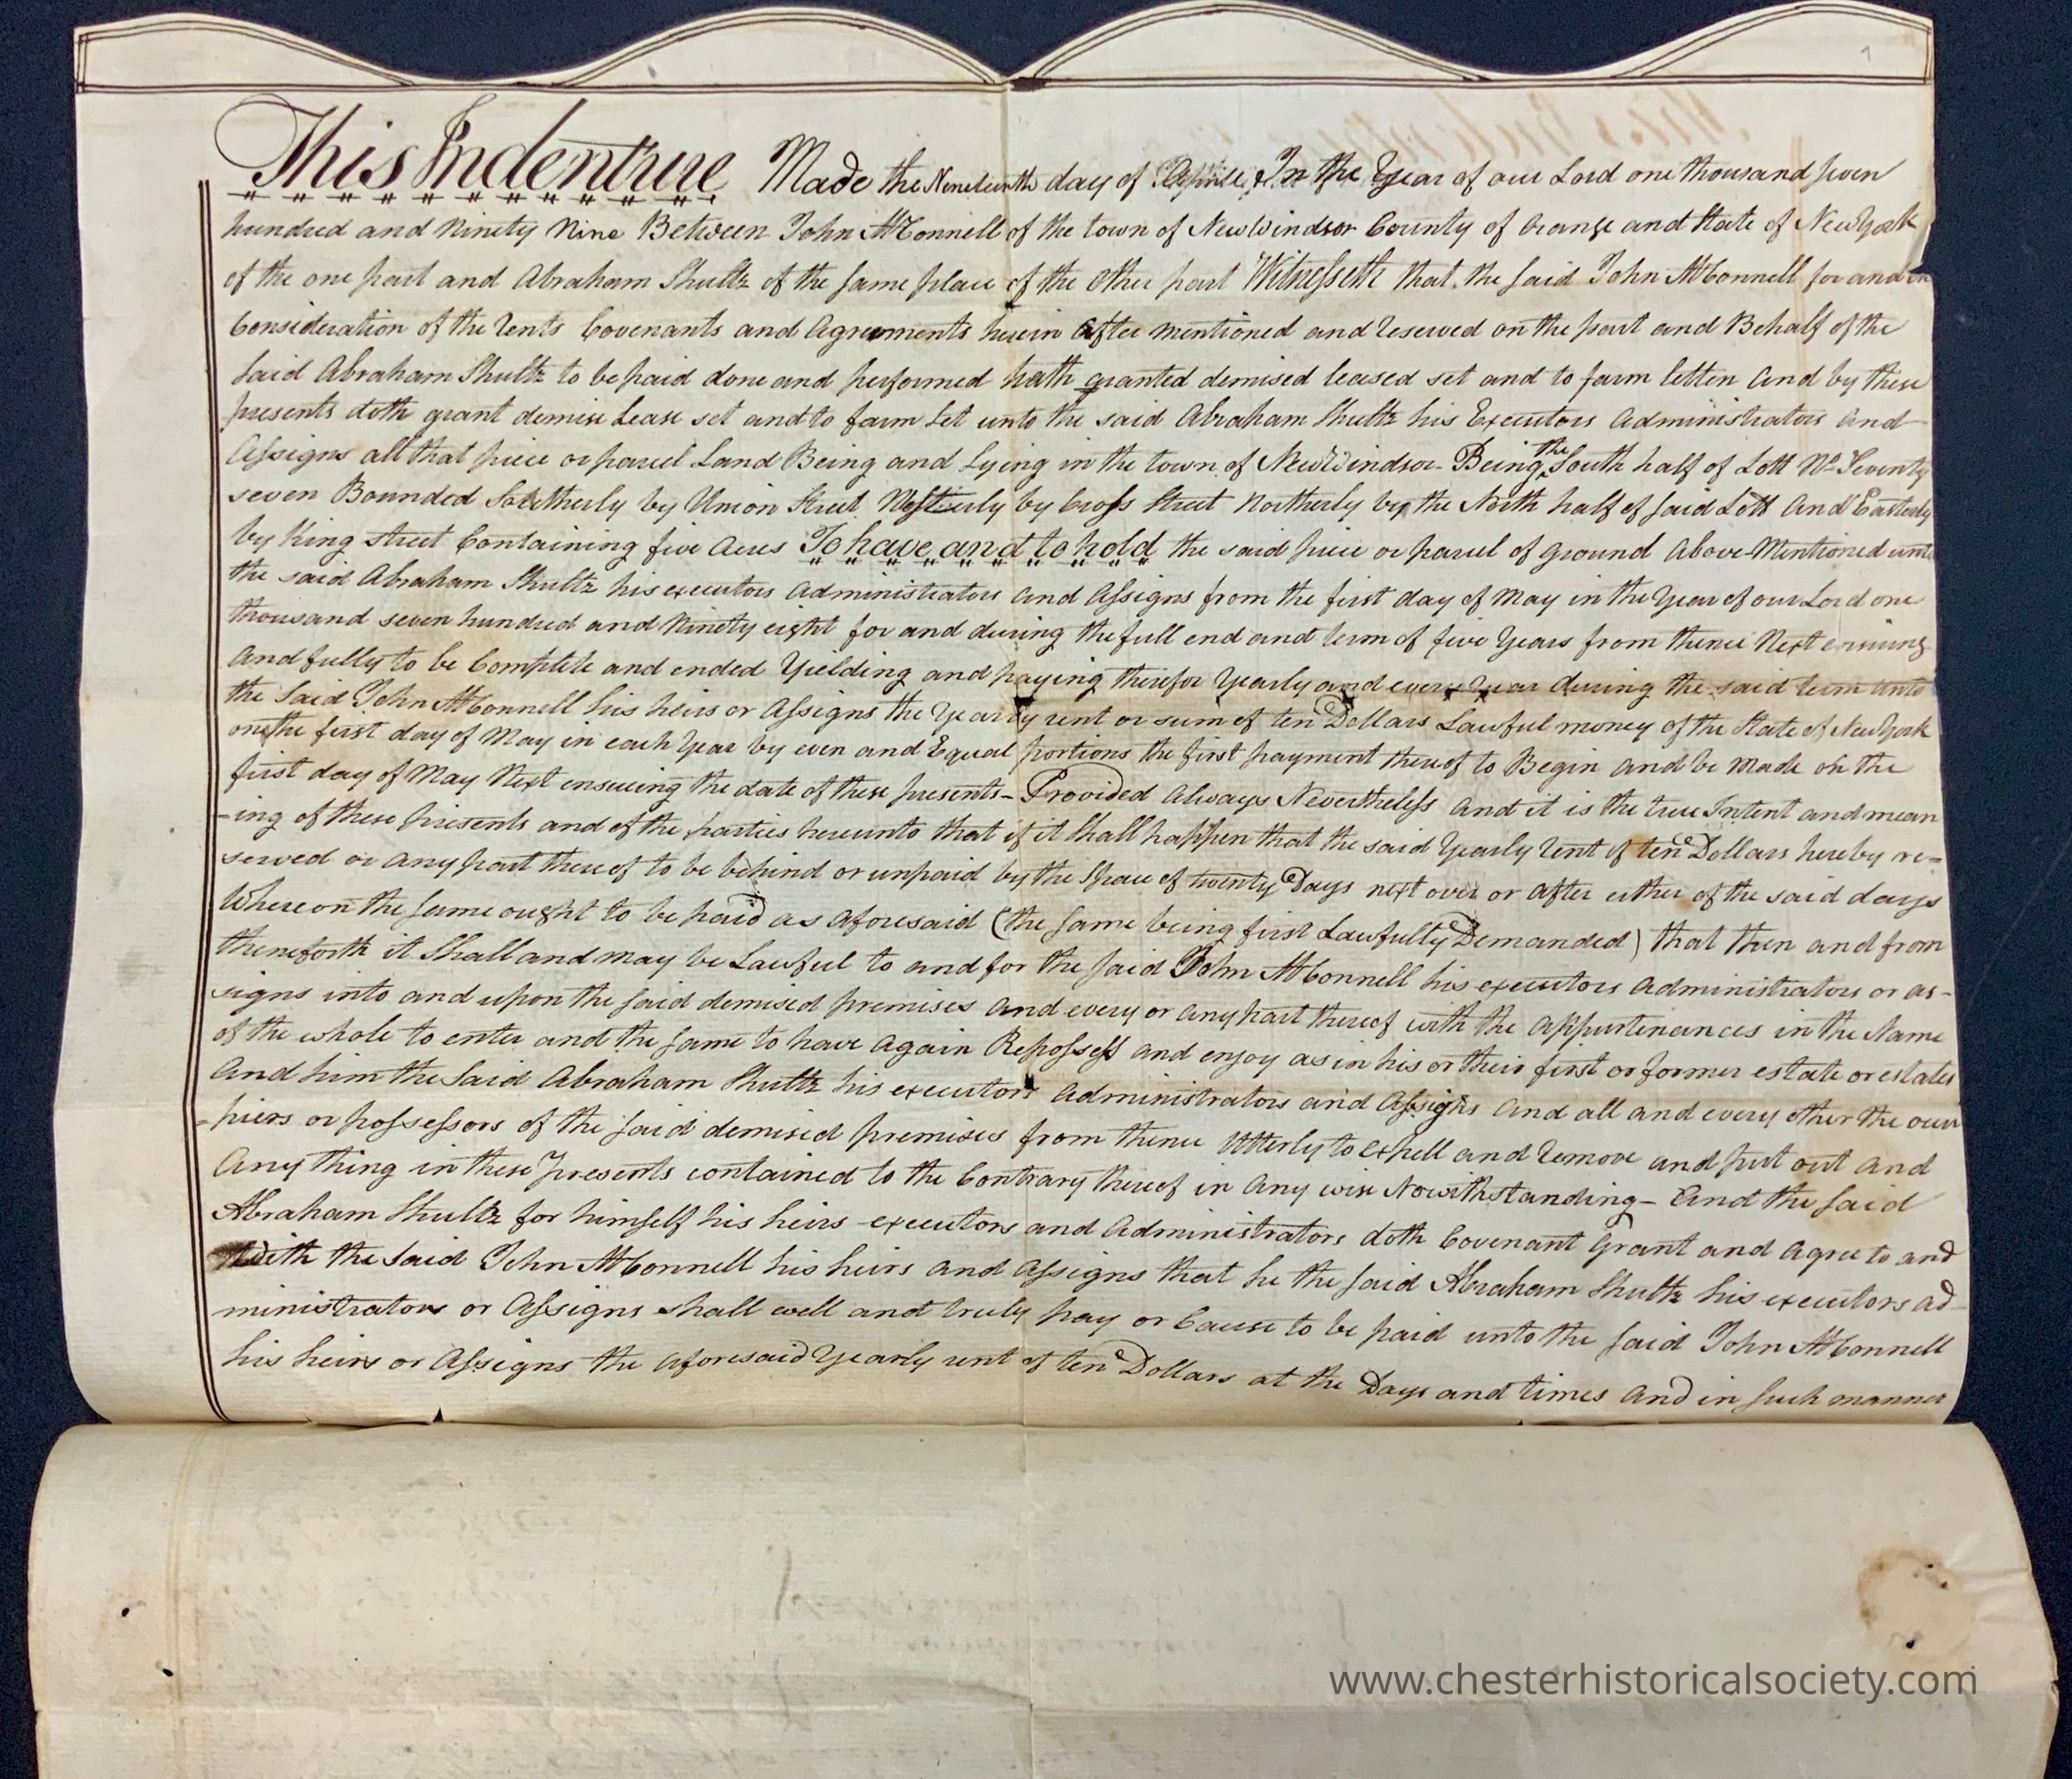 This Indenture Made the Nineteenth day of Aprile In the Year of our Lord one thousand seven
hundred and Ninety Nine Between John McConnell of the town of New Windsor County of Orange and State of New York
of the one part and Abraham Shultz of the same place of the other part Witnesseth that the said John McConnell for and in
Consideration of the rents Covenants and Agreements herein After mentioned and reserved on the part and Behalf of the
said Abraham Shultz to be paid done and performed hath granted demised leased set and to farm letten And by these
presents doth grant demise Lease set and to farm Let unto the said Abraham Shultz his Executors Administrators And
Assigns all that piece or parcel Land Being and Lying in the town of New Windsor Being the South half of Lott No Seventy
seven Bounded Southerly by Union Street Westerly by Cross Street Northerly by the North half of said Lott And Easterly
by King street Containing five Acres To have and to hold the said piece or parcel of ground Above Mentioned unto
the said Abraham Shultz his executors Administrators And Assigns from the first day of May in the Year of our Lord one
thousand seven hundred and Ninety eight for and during the full end and term of five Years from thence Next ensuing
And fully to be Complete and ended Yielding and paying therefor Yearly and every Year during the said term unto
the Said John McConnell his heirs or Assigns the Yearly rent or sum of ten Dollars Lawful money of the State of New York
on the first day of May in each Year by even and Equal portions the first payment thereof to Begin And be Made on the
first day of May Next ensuing the date of these presents- Provided Always Nevertheless And it is the true Intent and mean
-ing of these presents and of the parties hereunto that if it Shall happen that the said Yearly rent of ten Dollars hereby re=
served or Any part thereof to be behind or unpaid by the Space of twenty Days next over or After either of the said days
Whereon the same ought to be paid as Aforesaid (the same being first Lawfully Demanded) that then and from
thenceforth it Shall and may be Lawful to and for the said John McConnell his executors Administrators or as-
signs into and upon the said demised premises And every or Any part thereof with the Appurtinances in the Name
of the whole to enter and the same to have Again Repossess and enjoy as in his or their first or former estate or estates
And him the Said Abraham Shultz his executors Administrators and Assigns And all and every other the occu
-piers or possessors of the said demised premises from thence Utterly to expell and remove and put out And
Any thing in these presents contained to the Contrary thereof in Any wise Nowithstanding- And the said
Abraham Shultz for himself his heirs executors and Administrators doth Covenant Grant and Agree to and
With the Said John McConnell his heirs and Assigns that he the said Abraham Shultz his executors ad-
ministrators or Assigns shall well and truly pay or Cause to be paid unto the said John McConnell
his heirs or Assigns the Aforesaid Yearly rent of ten Dollars at the Days and times And in such manner
www.chesterhistoricalsociety.com